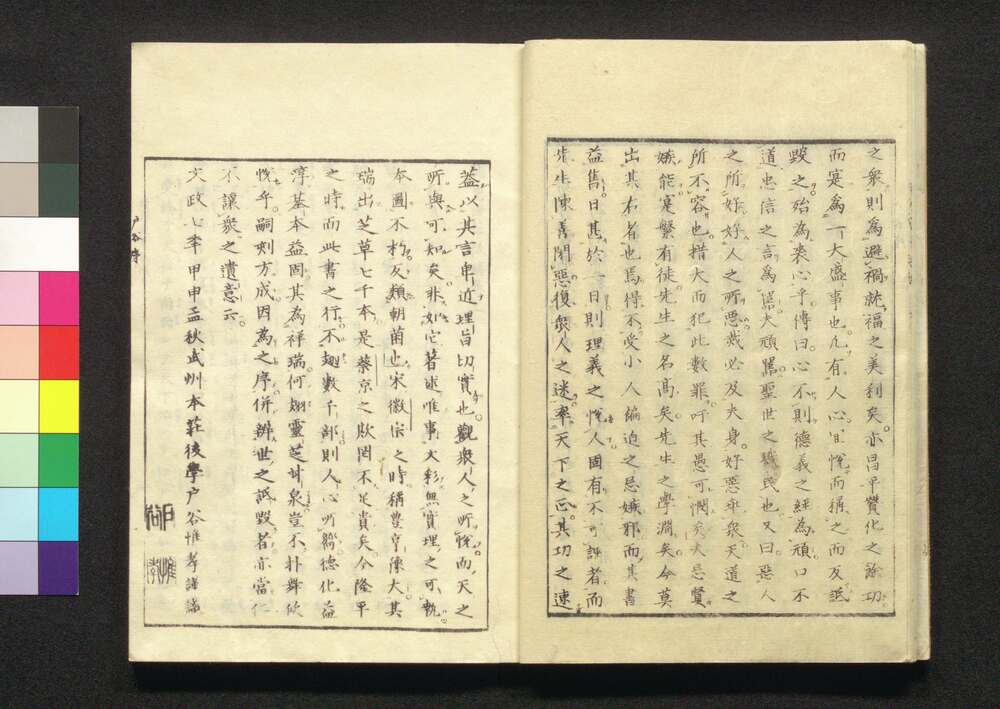 之衆則為避禍就福之美利矣亦昌平贊化之餘功
而寔為一大盛事也凡有人心者悅而稱之而反詆
毀之殆為喪心乎傳曰心不則德義之經為頑口不
道忠信之言為嚚夫頑嚚聖世之殘民也又曰惡人
之所好好人之所惡烖必及夫身好惡乖衆天道之
所不容也措大而犯此數罪吁其愚可憫矣夫忌賢
嫉能寔繁有徒先生之名高矣先生之學淵矣今莫
出其右者也焉得不受小人編迫之忌嫉邪而其書
益售日甚於一日則理義之悅人固有不可誣者而
先生陳善閉惡復衆人之迷率天下之正其功之速
蓋以其言卑近理旨切實也觀衆人之所悅而天之
所與可知矣非如它著述唯事文彩無實理之可執
本圖不朽反類朝菌也宋徽宗之時稱豊亨豫大其
瑞出芝草七千本是蔡京之欺罔不足貴矣今隆平
之時而此書之行不翅數千部則人心所簻德化益
淳基本益固其為祥瑞何翅靈芝甘泉豈不抃舞欣
悅乎嗣刻方成因為之序併辨世之詆毀者亦當仁
不讓衆之遺意云
文政七年甲申孟秋武州本莊後學戶谷惟孝謹識
惟孝